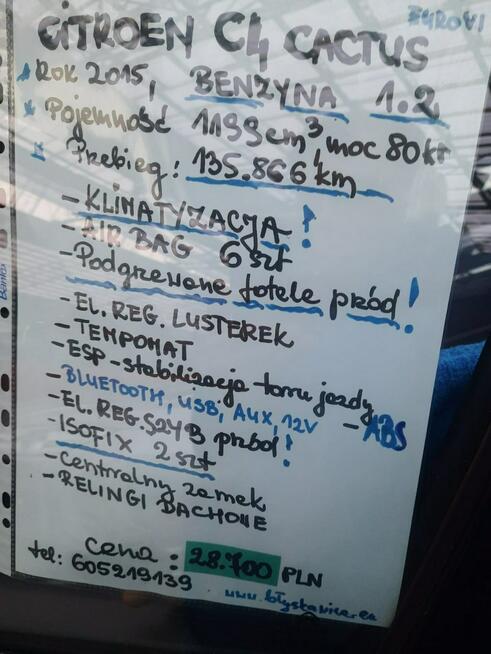 CITROEN C4 CACTUS
Rok 2015, BENZYNA 1.2
Pojemność 1199 cm³, moc 80kr
Przebieg: 135.866 km
- KLIMATYZACJA!
- AIR BAG 6 szt
- Podgrzewane fotele przód!
- EL. REG. LUSTEREK
- TEMPOMAT
- ESP - stabilizacja toru jazdy
- BLUETOOTH, USB, AUX, 12V - ABS
- EL. REG. SZYB przód!
- ISOFIX 2 szt
- centralny zamek
- RELINGI DACHOWE
cena: 28.700 PLN
tel: 605219139